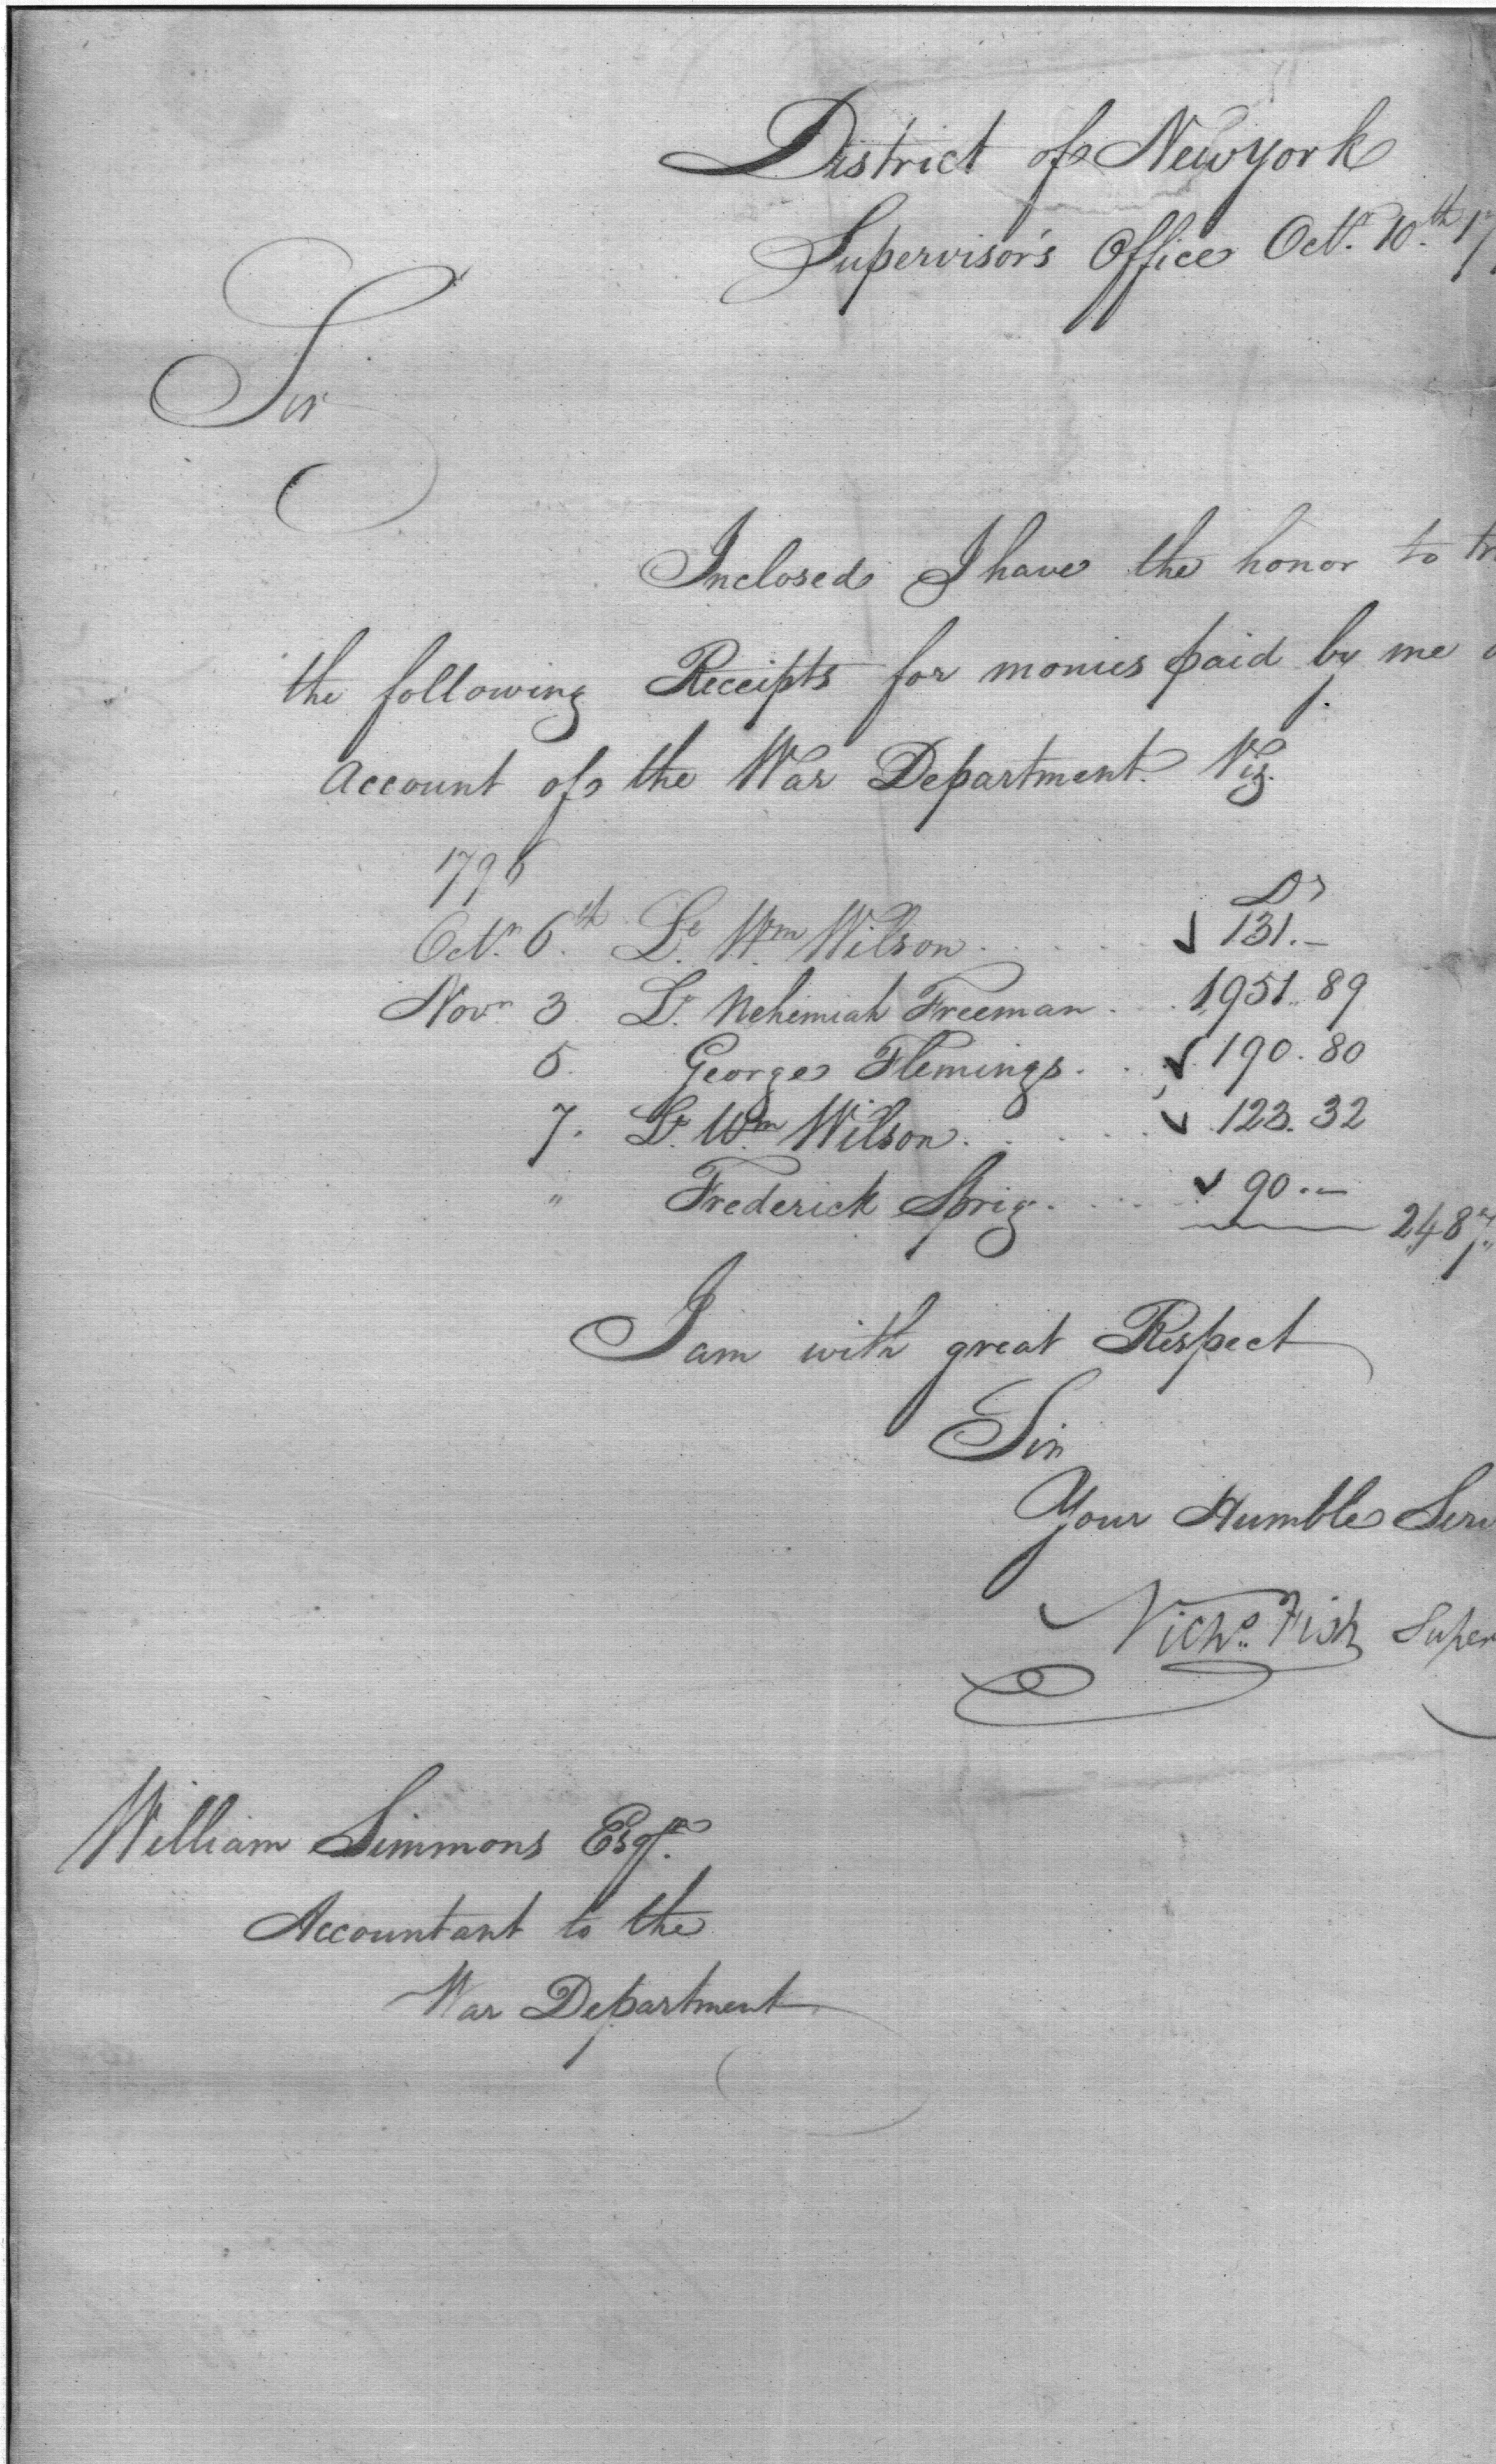 District of New york
Supervisor's Office Octr. 10th. 17
Sir
Inclosed I have the honor to
the following Receipts for monies paid by me
Account of the War Department. Viz.
1796
Drs
Octr. 6th Lt. Wm. Wilson . . . . . ✓ 131.–
Novr. 3 Lt. Nehemiah Freeman . . 1951.. 89
5. George Flemings . . ✓ 190. 80
7. Lt. Wm. Wilson . . . . . ✓ 123. 32
" Frederick Sprig . . . . ✓ 90.–
2487..
I am with great Respect
Sir
Your Humble
Nichs. Fish
William Simmons Esqr.
Accountant to the
War Department